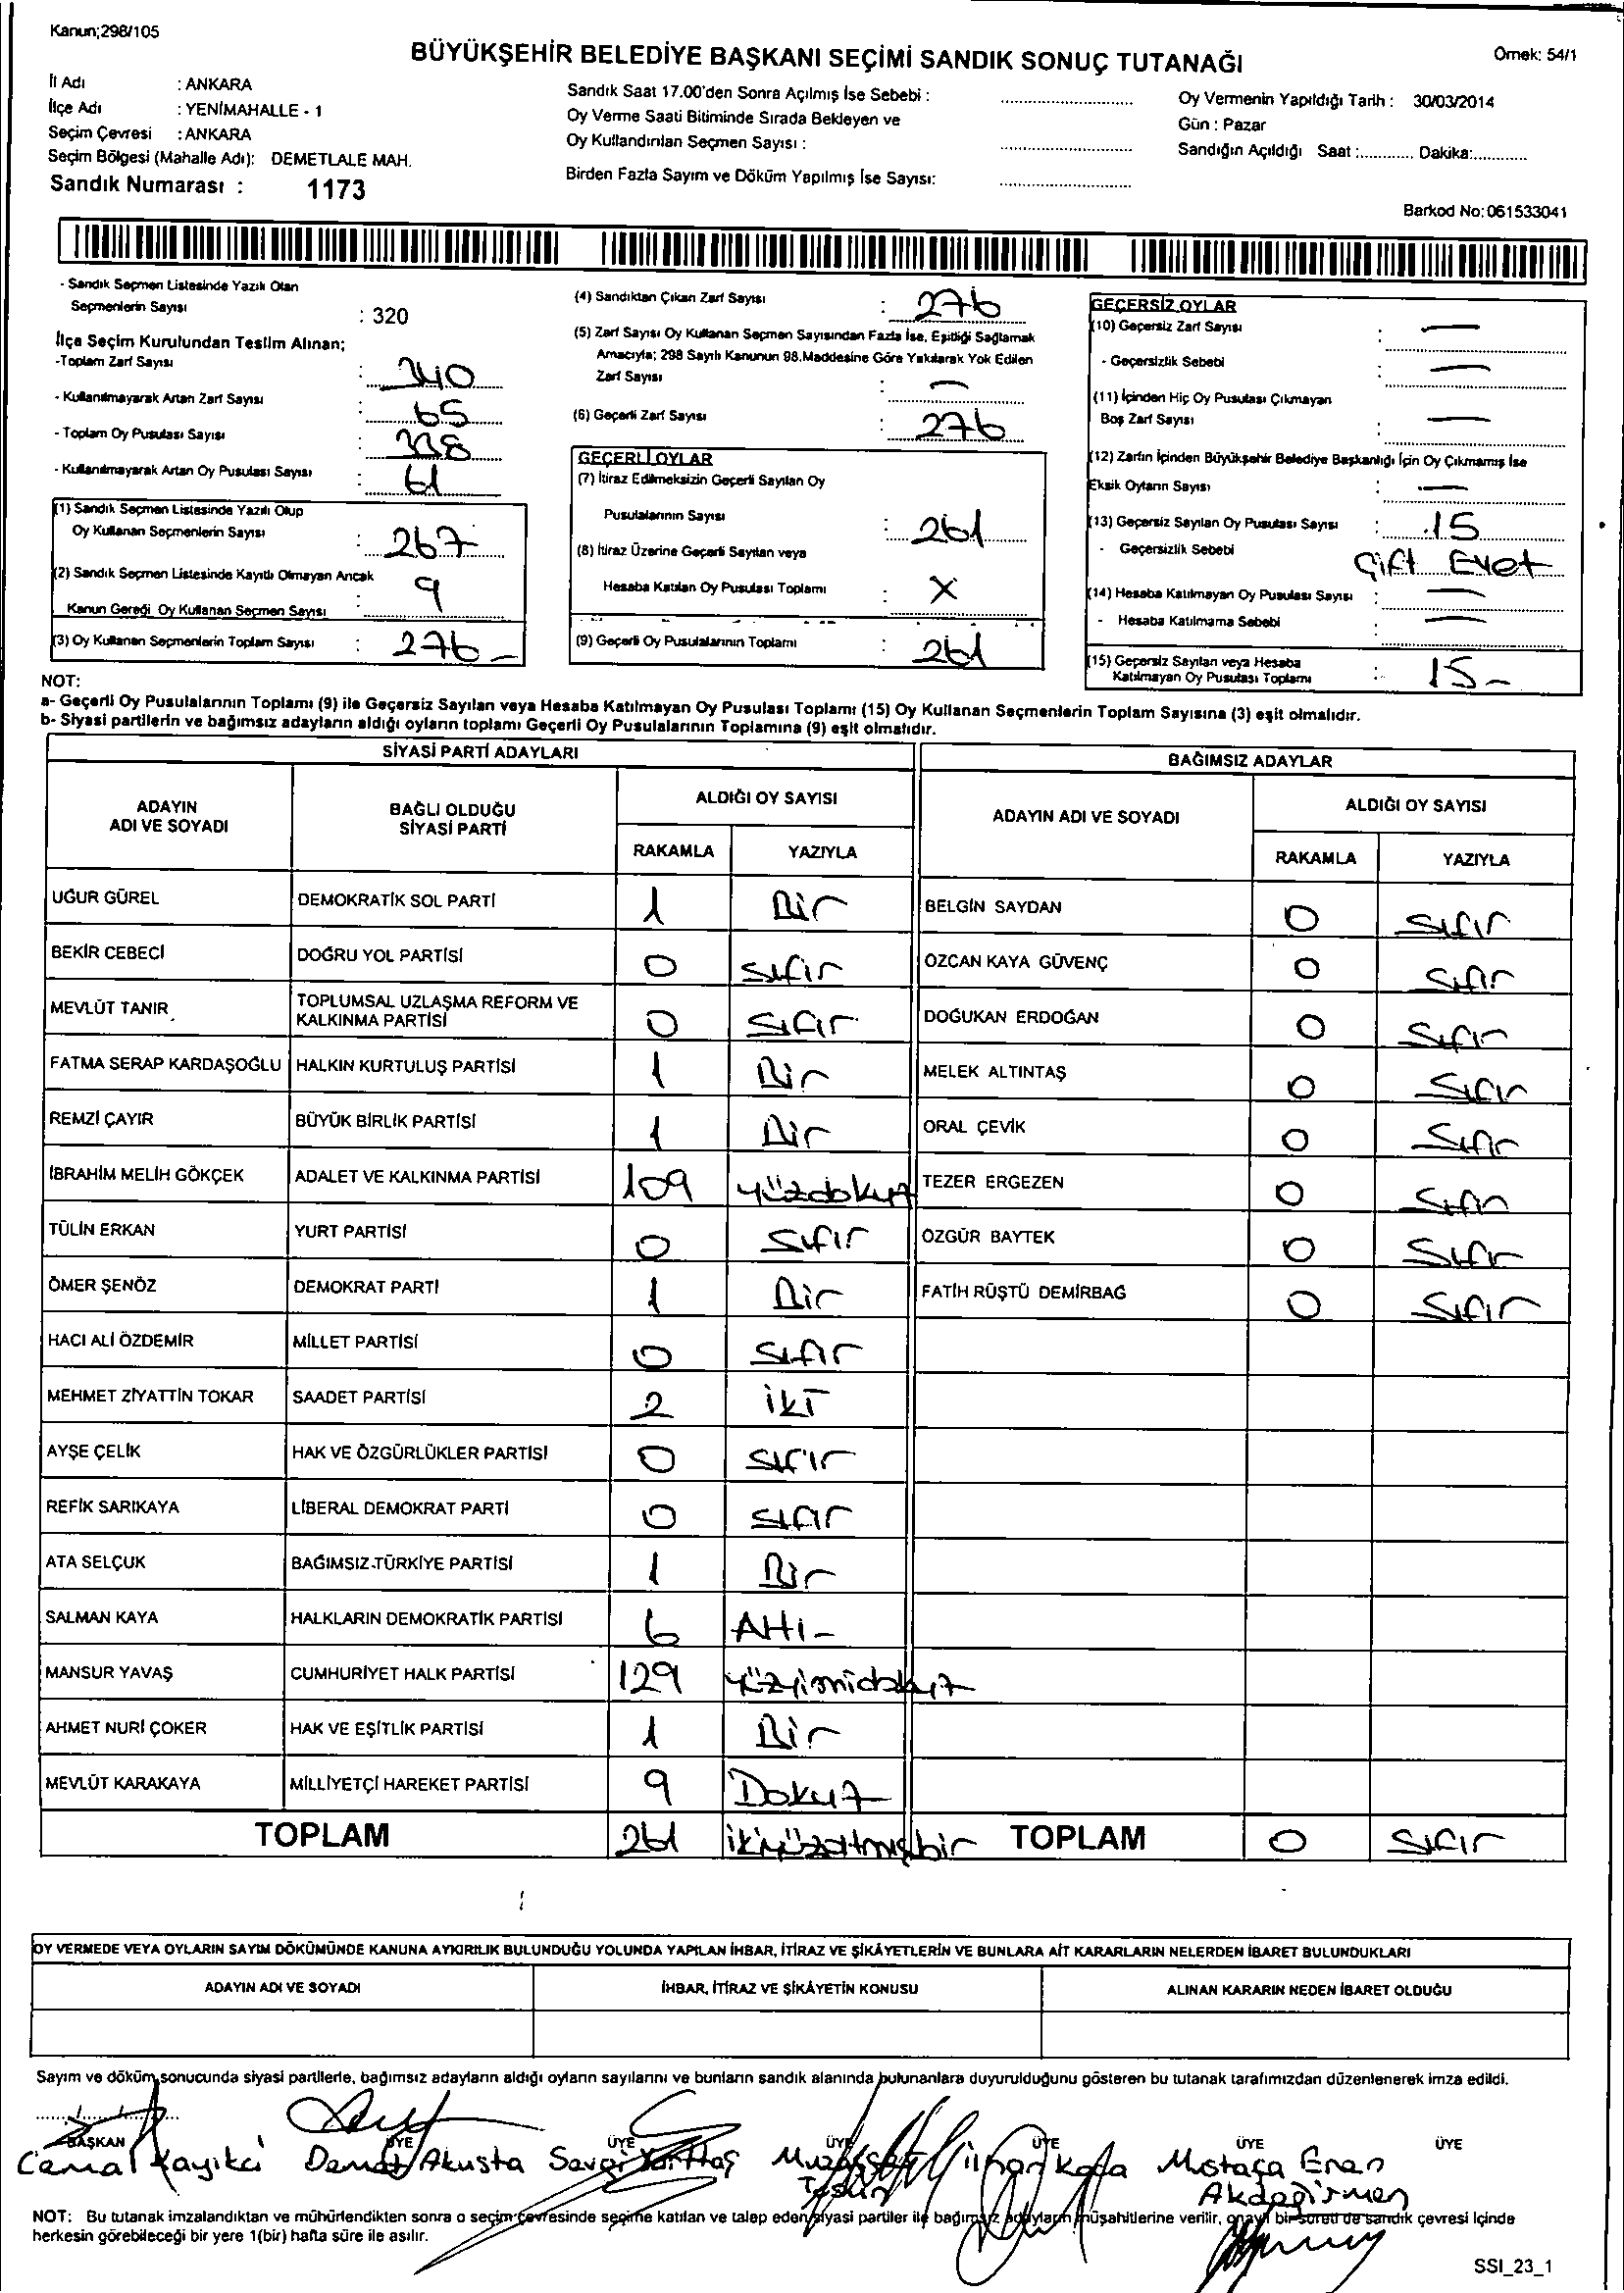 Kanun;298/105
BÜYÜKŞEHİR BELEDİYE BAŞKANI SEÇİMİ SANDIK SONUÇ TUTANAĞI
Örnek: 54/1
İl Adı : ANKARA
İlçe Adı : YENİMAHALLE - 1
Seçim Çevresi : ANKARA
Seçim Bölgesi (Mahalle Adı): DEMETLALE MAH.
Sandık Numarası : 1173
Sandık Saat 17.00'den Sonra Açılmış İse Sebebi :
Oy Verme Saati Bitiminde Sırada Bekleyen ve
Oy Kullandırılan Seçmen Sayısı :
Birden Fazla Sayım ve Döküm Yapılmış İse Sayısı:
Oy Vermenin Yapıldığı Tarih : 30/03/2014
Gün : Pazar
Sandığın Açıldığı Saat :............ Dakika:............
Barkod No:061533041
- Sandık Seçmen Listesinde Yazılı Olan
Seçmenlerin Sayısı : 320
İlçe Seçim Kurulundan Teslim Alınan;
-Toplam Zarf Sayısı : 340
- Kullanılmayarak Artan Zarf Sayısı : 65
- Toplam Oy Pusulası Sayısı : 338
- Kullanılmayarak Artan Oy Pusulası Sayısı : 61
(1) Sandık Seçmen Listesinde Yazılı Olup
Oy Kullanan Seçmenlerin Sayısı : 267
(2) Sandık Seçmen Listesinde Kayıtlı Olmayan Ancak
Kanun Gereği Oy Kullanan Seçmen Sayısı : 9
(3) Oy Kullanan Seçmenlerin Toplam Sayısı : 276 -
(4) Sandıktan Çıkan Zarf Sayısı : 276
(5) Zarf Sayısı Oy Kullanan Seçmen Sayısından Fazla İse, Eşitliği Sağlamak
Amacıyla; 298 Sayılı Kanunun 98.Maddesine Göre Yakılarak Yok Edilen
Zarf Sayısı : —
(6) Geçerli Zarf Sayısı : 276
GEÇERLİ OYLAR
(7) İtiraz Edilmeksizin Geçerli Sayılan Oy
Pusulalarının Sayısı : 261
(8) İtiraz Üzerine Geçerli Sayılan veya
Hesaba Katılan Oy Pusulası Toplamı : X
(9) Geçerli Oy Pusulalarının Toplamı : 261
GEÇERSİZ OYLAR
(10) Geçersiz Zarf Sayısı : —
- Geçersizlik Sebebi —
(11) İçinden Hiç Oy Pusulası Çıkmayan
Boş Zarf Sayısı : —
(12) Zarfın İçinden Büyükşehir Belediye Başkanlığı İçin Oy Çıkmamış İse
Eksik Oyların Sayısı : —
(13) Geçersiz Sayılan Oy Pusulası Sayısı : 15
- Geçersizlik Sebebi Çift Evet
(14) Hesaba Katılmayan Oy Pusulası Sayısı : —
- Hesaba Katılmama Sebebi : —
(15) Geçersiz Sayılan veya Hesaba
Katılmayan Oy Pusulası Toplamı : 15 -
NOT:
a- Geçerli Oy Pusulalarının Toplamı (9) ile Geçersiz Sayılan veya Hesaba Katılmayan Oy Pusulası Toplamı (15) Oy Kullanan Seçmenlerin Toplam Sayısına (3) eşit olmalıdır.
b- Siyasi partilerin ve bağımsız adayların aldığı oyların toplamı Geçerli Oy Pusulalarının Toplamına (9) eşit olmalıdır.
SİYASİ PARTİ ADAYLARI
BAĞIMSIZ ADAYLAR
ADAYIN ADI VE SOYADI
BAĞLI OLDUĞU SİYASİ PARTİ
ALDIĞI OY SAYISI
RAKAMLA YAZIYLA
ADAYIN ADI VE SOYADI
ALDIĞI OY SAYISI
RAKAMLA YAZIYLA
UĞUR GÜREL DEMOKRATİK SOL PARTİ 1 Bir BELGİN SAYDAN 0 Sıfır
BEKİR CEBECİ DOĞRU YOL PARTİSİ 0 Sıfır ÖZCAN KAYA GÜVENÇ 0 Sıfır
MEVLÜT TANIR TOPLUMSAL UZLAŞMA REFORM VE KALKINMA PARTİSİ 0 Sıfır DOĞUKAN ERDOĞAN 0 Sıfır
FATMA SERAP KARDAŞOĞLU HALKIN KURTULUŞ PARTİSİ 1 Bir MELEK ALTINTAŞ 0 Sıfır
REMZİ ÇAYIR BÜYÜK BİRLİK PARTİSİ 1 Bir ORAL ÇEVİK 0 Sıfır
İBRAHİM MELİH GÖKÇEK ADALET VE KALKINMA PARTİSİ 109 yüzdokuz TEZER ERGEZEN 0 Sıfır
TÜLİN ERKAN YURT PARTİSİ 0 Sıfır ÖZGÜR BAYTEK 0 Sıfır
ÖMER ŞENÖZ DEMOKRAT PARTİ 1 Bir FATİH RÜŞTÜ DEMİRBAĞ 0 Sıfır
HACI ALİ ÖZDEMİR MİLLET PARTİSİ 0 Sıfır
MEHMET ZİYATTİN TOKAR SAADET PARTİSİ 2 İkİ
AYŞE ÇELİK HAK VE ÖZGÜRLÜKLER PARTİSİ 0 Sıfır
REFİK SARIKAYA LİBERAL DEMOKRAT PARTİ 0 Sıfır
ATA SELÇUK BAĞIMSIZ TÜRKİYE PARTİSİ 1 Bir
SALMAN KAYA HALKLARIN DEMOKRATİK PARTİSİ 6 Altı-
MANSUR YAVAŞ CUMHURİYET HALK PARTİSİ 129 yüzyirmidokuz
AHMET NURİ ÇOKER HAK VE EŞİTLİK PARTİSİ 1 Bir
MEVLÜT KARAKAYA MİLLİYETÇİ HAREKET PARTİSİ 9 Dokuz
TOPLAM 261 ikiyüzaltmışbir TOPLAM 0 Sıfır
OY VERMEDE VEYA OYLARIN SAYIM DÖKÜMÜNDE KANUNA AYKIRILIK BULUNDUĞU YOLUNDA YAPILAN İHBAR, İTİRAZ VE ŞİKÂYETLERİN VE BUNLARA AİT KARARLARIN NELERDEN İBARET BULUNDUKLARI
ADAYIN ADI VE SOYADI İHBAR, İTİRAZ VE ŞİKÂYETİN KONUSU ALINAN KARARIN NEDEN İBARET OLDUĞU
Sayım ve döküm sonucunda siyasi partilerle, bağımsız adayların aldığı oyların sayılarını ve bunların sandık alanında bulunanlara duyurulduğunu gösteren bu tutanak tarafımızdan düzenlenerek imza edildi.
BAŞKAN ÜYE ÜYE ÜYE ÜYE ÜYE ÜYE
Cemal Kayıkcı Demet Akusta Mustafa Eren
Akdeğirmen
NOT: Bu tutanak imzalandıktan ve mühürlendikten sonra o seçim çevresinde seçime katılan ve talep eden siyasi partiler ile bağımsız adayların müşahitlerine verilir, onaylı bir sureti de sandık çevresi içinde
herkesin görebileceği bir yere 1(bir) hafta süre ile asılır.
SSI_23_1